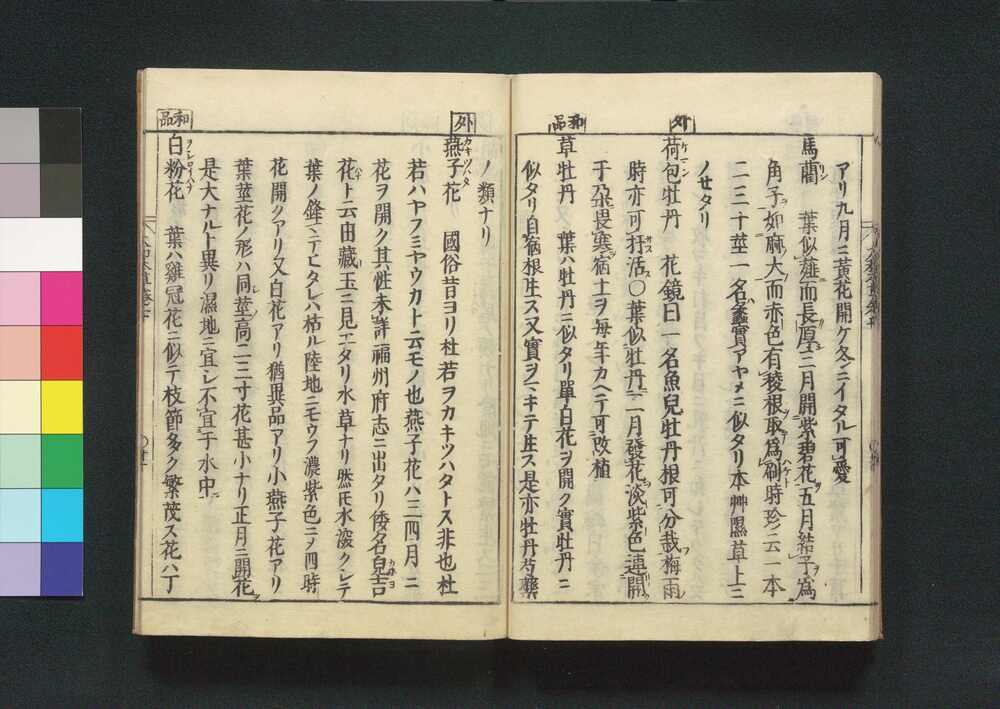 アリ九月ニ黃花開ケ冬ニイタル可愛
馬藺 葉似薤而長厚三月開紫碧花五月結子爲
角子如麻大而赤色有稜根取爲刷時珍云一本
二三十莖一名蠡實アヤメニ似タリ本艸隰草上ニ
ノセタリ
外
荷包牡丹 花鏡曰一名魚兒牡丹根可分栽梅雨
時亦可扦活〇葉似牡丹二月發花淡紫色連開
于朶畏寒宿土ヲ毎年カヘテ可改植
和品
草牡丹 葉ハ牡丹ニ似タリ單白花ヲ開ク實牡丹ニ
似タリ自宿根生ス又實ヲマキテ生ス是亦牡丹芍藥
ノ類ナリ
外
燕子花 國俗昔ヨリ杜若ヲカキツハタトス非也杜
若ハヤフミヤウカト云モノ也燕子花ハ三四月ニ
花ヲ開ク其性未詳福州府志ニ出タリ倭名皃吉
花ト云由藏玉ニ見エタリ水草ナリ然𪜈水淺クシテ
葉ノ鋒マテヒタレハ枯ル陸地ニモウフ濃紫色ニメ四時
花開クアリ又白花アリ猶異品アリ小燕子花アリ
葉莖花ノ形ハ同莖高二三寸花甚小ナリ正月ニ開花
是大ナルト異リ濕地ニ宜シ不宜于水中
和品
白粉花 葉ハ雞冠花ニ似テ枝節多ク繁茂ス花ハ丁